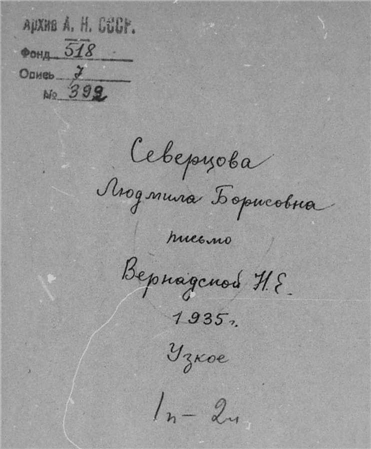 Архив А. Н. СССР.
Фонд 518
Опись 7
№ 392
Северцова
Людмила Борисовна
письмо
Вернадской Н.Е.
1935 г.
Узкое
1п – 2л